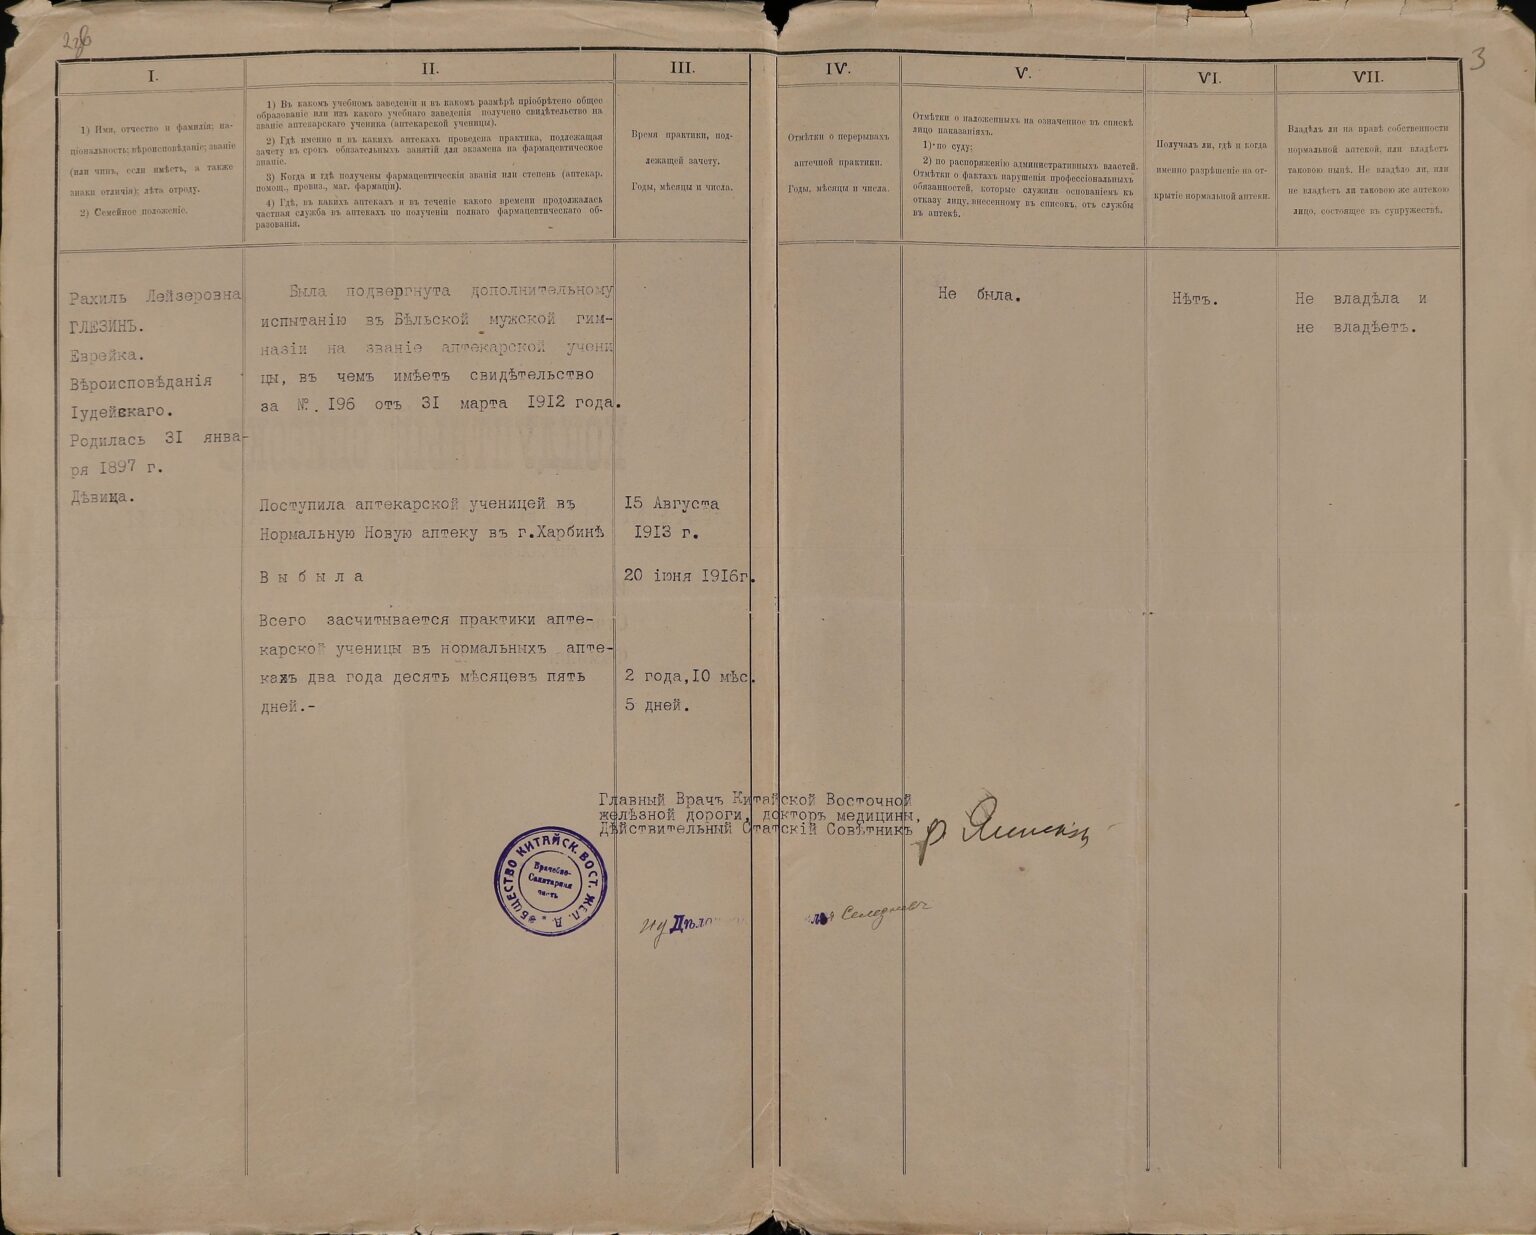 3
I.
II.
III.
IV.
V.
VI.
VII.
1) Имя, отчество и фамилія; на-
ціональность; вѣроисповѣданіе; званіе
(или чинъ, если имѣетъ, а также
знаки отличія); лѣта отроду.
2) Семейное положеніе.
1) Въ какомъ учебномъ заведеніи и въ какомъ размѣрѣ пріобрѣтено общее
образованіе или изъ какого учебнаго заведенія получено свидѣтельство на
званіе аптекарскаго ученика (аптекарской ученицы).
2) Гдѣ именно и въ какихъ аптекахъ проведена практика, подлежащая
зачету въ срокъ обязательныхъ занятій для экзамена на фармацевтическое
званіе.
3) Когда и гдѣ получены фармацевтическія званія или степень (аптекар.
помощ., провиз., маг. фармаціи).
4) Гдѣ, въ какихъ аптекахъ и въ теченіе какого времени продолжалась
частная служба въ аптекахъ по полученіи полнаго фармацевтическаго об-
разованія.
Время практики, под-
лежащей зачету.
Годы, мѣсяцы и числа.
Отмѣтки о перерывахъ
аптечной практики.
Годы, мѣсяцы и числа.
Отмѣтки о наложенныхъ на означенное въ спискѣ
лицо наказаніяхъ.
1) по суду;
2) по распоряженію административныхъ властей.
Отмѣтки о фактахъ нарушенія профессіональныхъ
обязанностей, которые служили основаніемъ къ
отказу лицу, внесенному въ списокъ, отъ службы
въ аптекѣ.
Получалъ ли, гдѣ и когда
именно разрѣшеніе на от-
крытіе нормальной аптеки.
Владѣлъ ли на правѣ собственности
нормальной аптекой, или владѣетъ
таковою нынѣ. Не владѣло ли, или
не владѣетъ ли таковою же аптекою
лицо, состоящее въ супружествѣ.
Рахиль Лейзеровна
ГЛЕЗИНЪ.
Еврейка.
Вѣроисповѣданія
Іудейскаго.
Родилась 31 янва-
ря 1897 г.
Дѣвица.
Была подвергнута дополнительному
испытанію въ Бѣльской мужской гим-
назіи на званіе аптекарской учени
цы, въ чемъ имѣетъ свидѣтельство
за №. 196 отъ 31 марта 1912 года.
Поступила аптекарской ученицей въ
Нормальную Новую аптеку въ г.Харбинѣ
В ы б ы л а
Всего засчитывается практики апте-
карской ученицы въ нормальныхъ апте-
кахъ два года десять мѣсяцевъ пять
дней.-
15 Августа
1913 г.
20 іюня 1916г.
2 года,10 мѣс.
5 дней.
Не была.
Нѣтъ.
Не владѣла и
не владѣетъ.
Главный Врачъ Китайской Восточной
желѣзной дороги, докторъ медицины,
Дѣйствительный Статскій Совѣтникъ
ОБЩЕСТВО КИТАЙСК. ВОСТ. ЖЕЛ. Д.
Врачебно-
Санитарная
часть